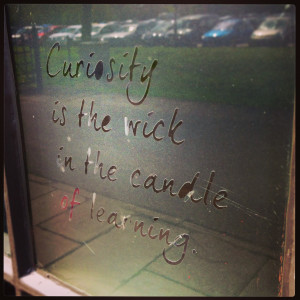 Curiosity
is the wick
in the candle
of learning.